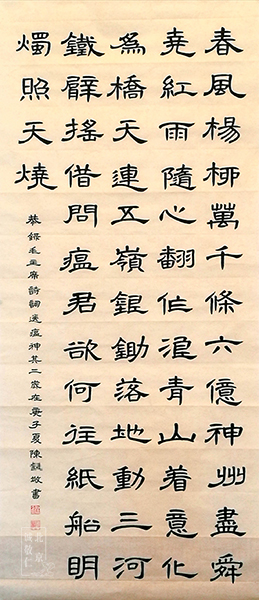 春風楊柳萬千條六億神州盡舜
堯紅雨隨心翻作浪青山着意化
爲橋天連五嶺銀鋤落地動三河
鐵臂搖借問瘟君欲何往紙船明
燭照天燒
恭錄毛主席詩詞送瘟神其二歲在庚子夏陳敬書
北京